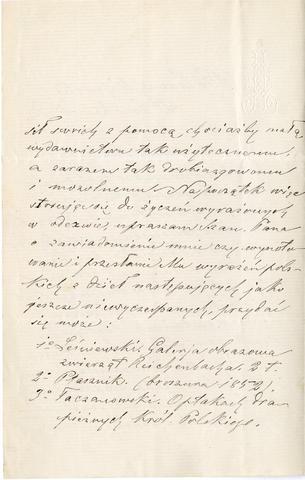 sił swoich z pomocą chociażby małą
wydawnictwu tak użytecznemu,
a zarazem tak drobiazgowemu
i mozolnemu. Na początek więc
stosując się do życzeń wyrażonych
w odezwie, upraszam Szan. Pana
o zawiadomienie mnie czy wynoto-
wanie i przesłanie Mu wyrażeń pols-
kich z dzieł następujących jako
jeszcze niewyczerpanych, przydać
się może:
1o Leśniewski. Galerja obrazowa
zwierząt Reichenbacha. 2 t.
2o Ptasznik. (broszura 1852).
3o Taczanowski. O ptakach dra-
pieżnych Król. Polskiego.